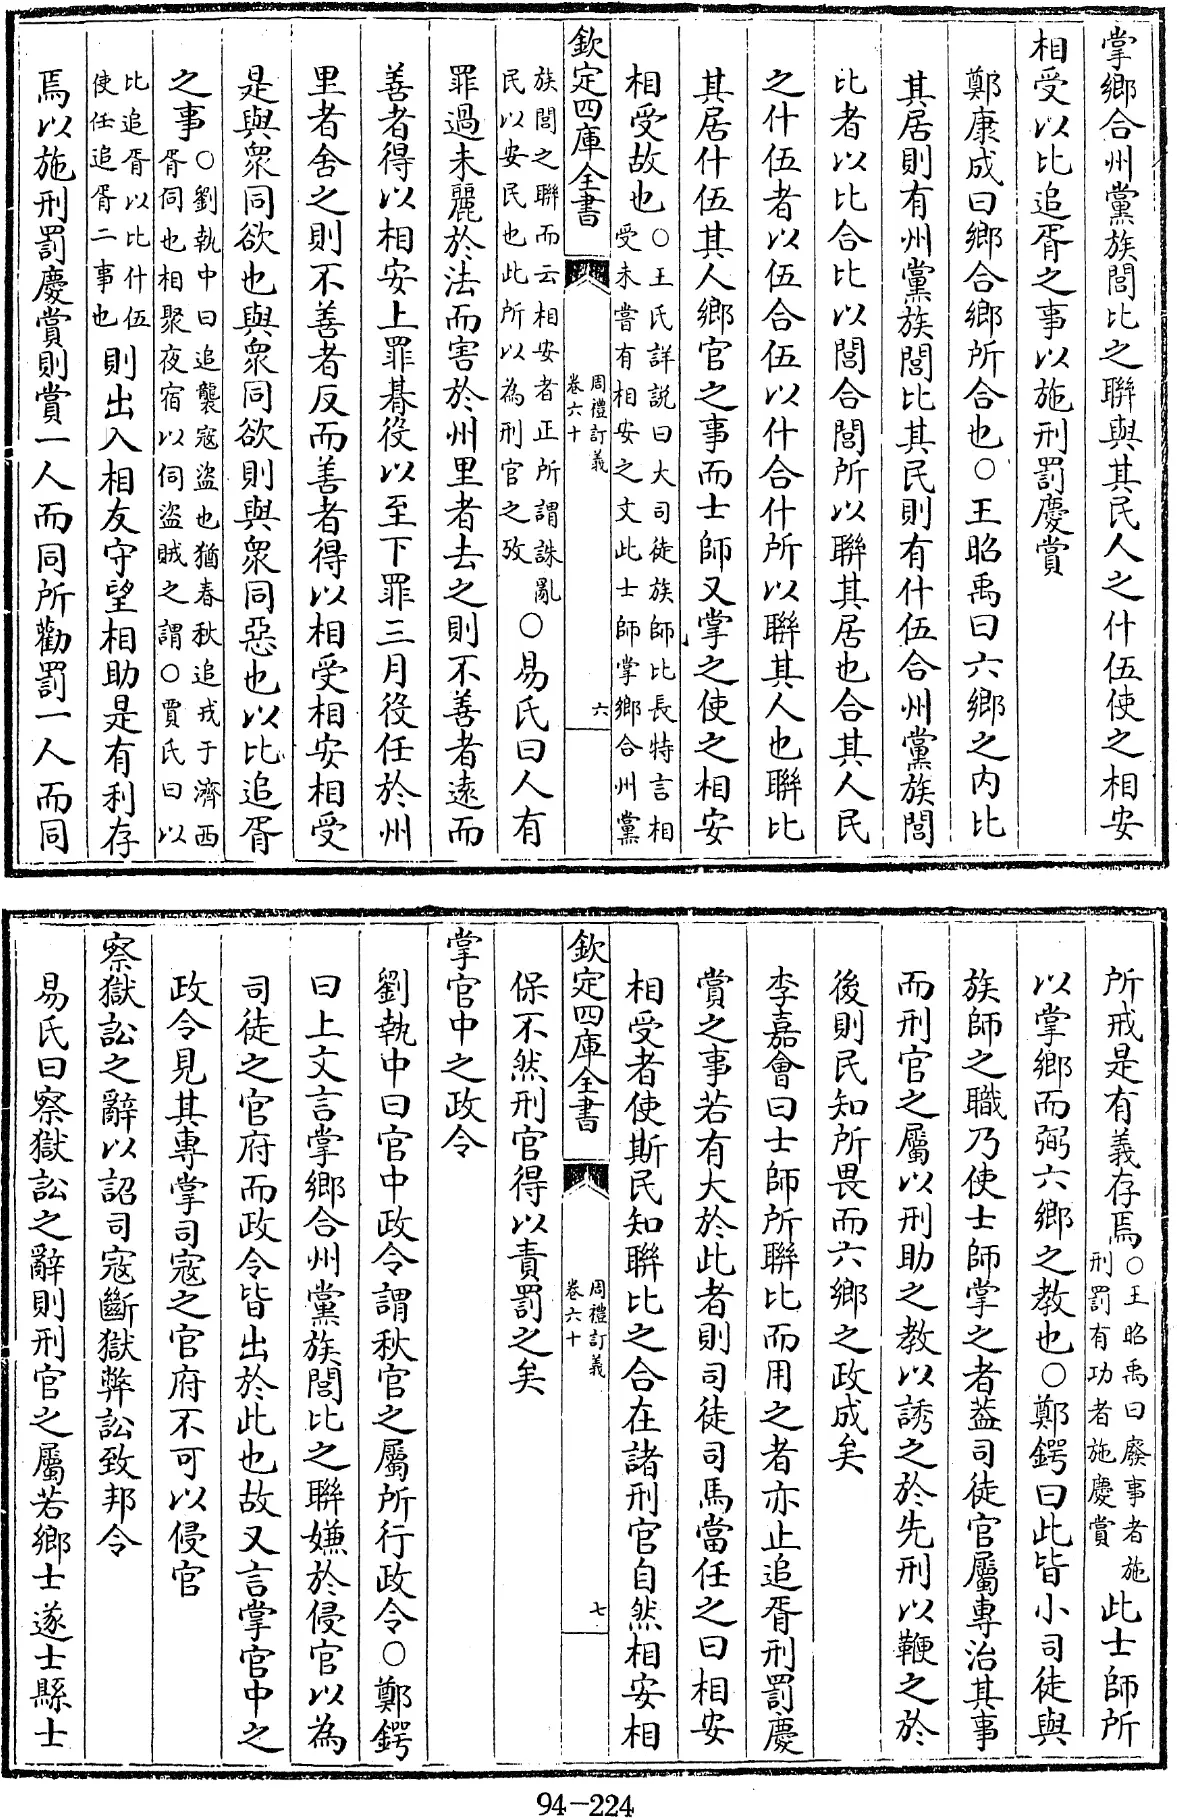 掌鄉合州黨族閭比之聯與其民人之什伍使之相安
相受以比追胥之事以施刑罰慶賞
鄭康成曰鄉合鄉所合也○王昭禹曰六鄉之内比
其居則有州黨族閭比其民則有什伍合州黨族閭
比者以比合比以閭合閭所以聯其居也合其人民
之什伍者以伍合伍以什合什所以聯其人也聯比
其居什伍其人鄉官之事而士師又掌之使之相安
相受故也○王氏詳説曰大司徒族師比長特言相
受未嘗有相安之文此士師掌鄉合州黨
欽定四庫全書
周禮訂義
卷六十
六
族閭之聯而云相安者正所謂誅亂
民以安民也此所以為刑官之攷
○易氏曰人有
罪過未麗於法而害於州里者去之則不善者遠而
善者得以相安上罪朞役以至下罪三月役任於州
里者舍之則不善者反而善者得以相受相安相受
是與衆同欲也與衆同欲則與衆同惡也以比追胥
之事○劉執中曰追襲寇盜也猶春秋追戎于濟西
胥伺也相聚夜宿以伺盜賊之謂○賈氏曰以
比追胥以比什伍
使任追胥二事也
則出入相友守望相助是有利存
焉以施刑罰慶賞則賞一人而同所勸罰一人而同
所戒是有義存焉○王昭禹曰廢事者施
刑罰有功者施慶賞
此士師所
以掌鄉而弼六鄉之教也○鄭鍔曰此皆小司徒與
族師之職乃使士師掌之者葢司徒官屬專治其事
而刑官之屬以刑助之教以誘之於先刑以鞭之於
後則民知所畏而六鄉之政成矣
李嘉會曰士師所聯比而用之者亦止追胥刑罰慶
賞之事若有大於此者則司徒司馬當任之曰相安
相受者使斯民知聯比之合在諸刑官自然相安相
欽定四庫全書
周禮訂義
卷六十
七
保不然刑官得以責罰之矣
掌官中之政令
劉執中曰官中政令謂秋官之屬所行政令○鄭鍔
曰上文言掌鄉合州黨族閭比之聯嫌於侵官以為
司徒之官府而政令皆出於此也故又言掌官中之
政令見其專掌司寇之官府不可以侵官
察獄訟之辭以詔司寇斷獄弊訟致邦令
易氏曰察獄訟之辭則刑官之屬若鄉士遂士縣士
94-224